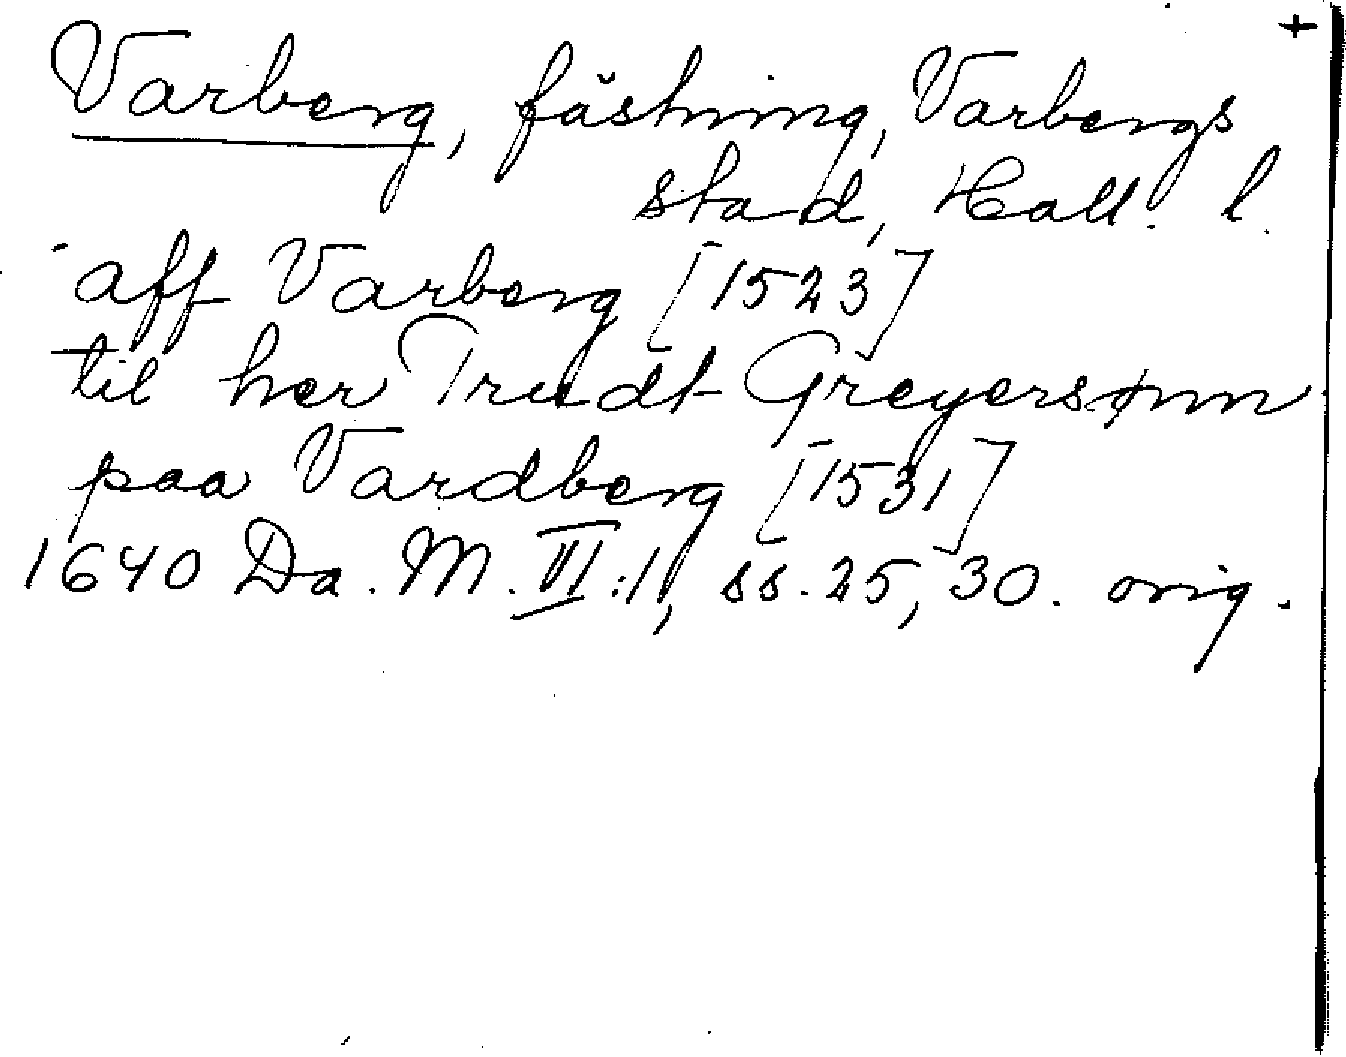 +
Varberg, fästning, Varbergs
stad, Hall. l.
aff Varberg [1523]
til her Trudt Greyersønn
paa Vardberg [1531]
1640 Da. M. VI:1, ss. 25, 30. orig.